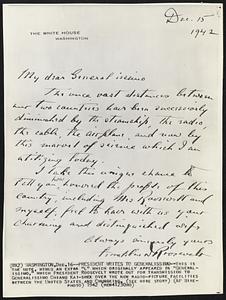 Dec. 15
1942
THE WHITE HOUSE
WASHINGTON
My dear Generalissimo
The once vast distances between
our two countries have been successively
diminished by the steamship, the radio,
the cable, the airplane, and now by
this marvel of science which I am
utilizing today.
I take this unique chance to
tell you how honored the people of this
country, including Mrs Roosevelt and
myself, feel to have with us your
charming and distinguished wife
Always sincerely yours
Franklin D. Roosevelt
WASHINGTON, Dec. 16--PRESIDENT WRITES TO GENERALISSIMO--THIS IS
THE NOTE, MINUS AN EXTRA "L" WHICH ORIGINALLY APPEARED IN "GENERAL-
ISSIMO," WHICH PRESIDENT ROOSEVELT WROTE OUT FOR TRANSMISSION TO
GENERALISSIMO CHIANG KAI-SHEK OVER THE NEW RADIOPHOTO CIRCUIT
BETWEEN THE UNITED STATES AND CHUNGKING. (SEE WIRE STORY) (AP WIRE-
PHOTO) 1942